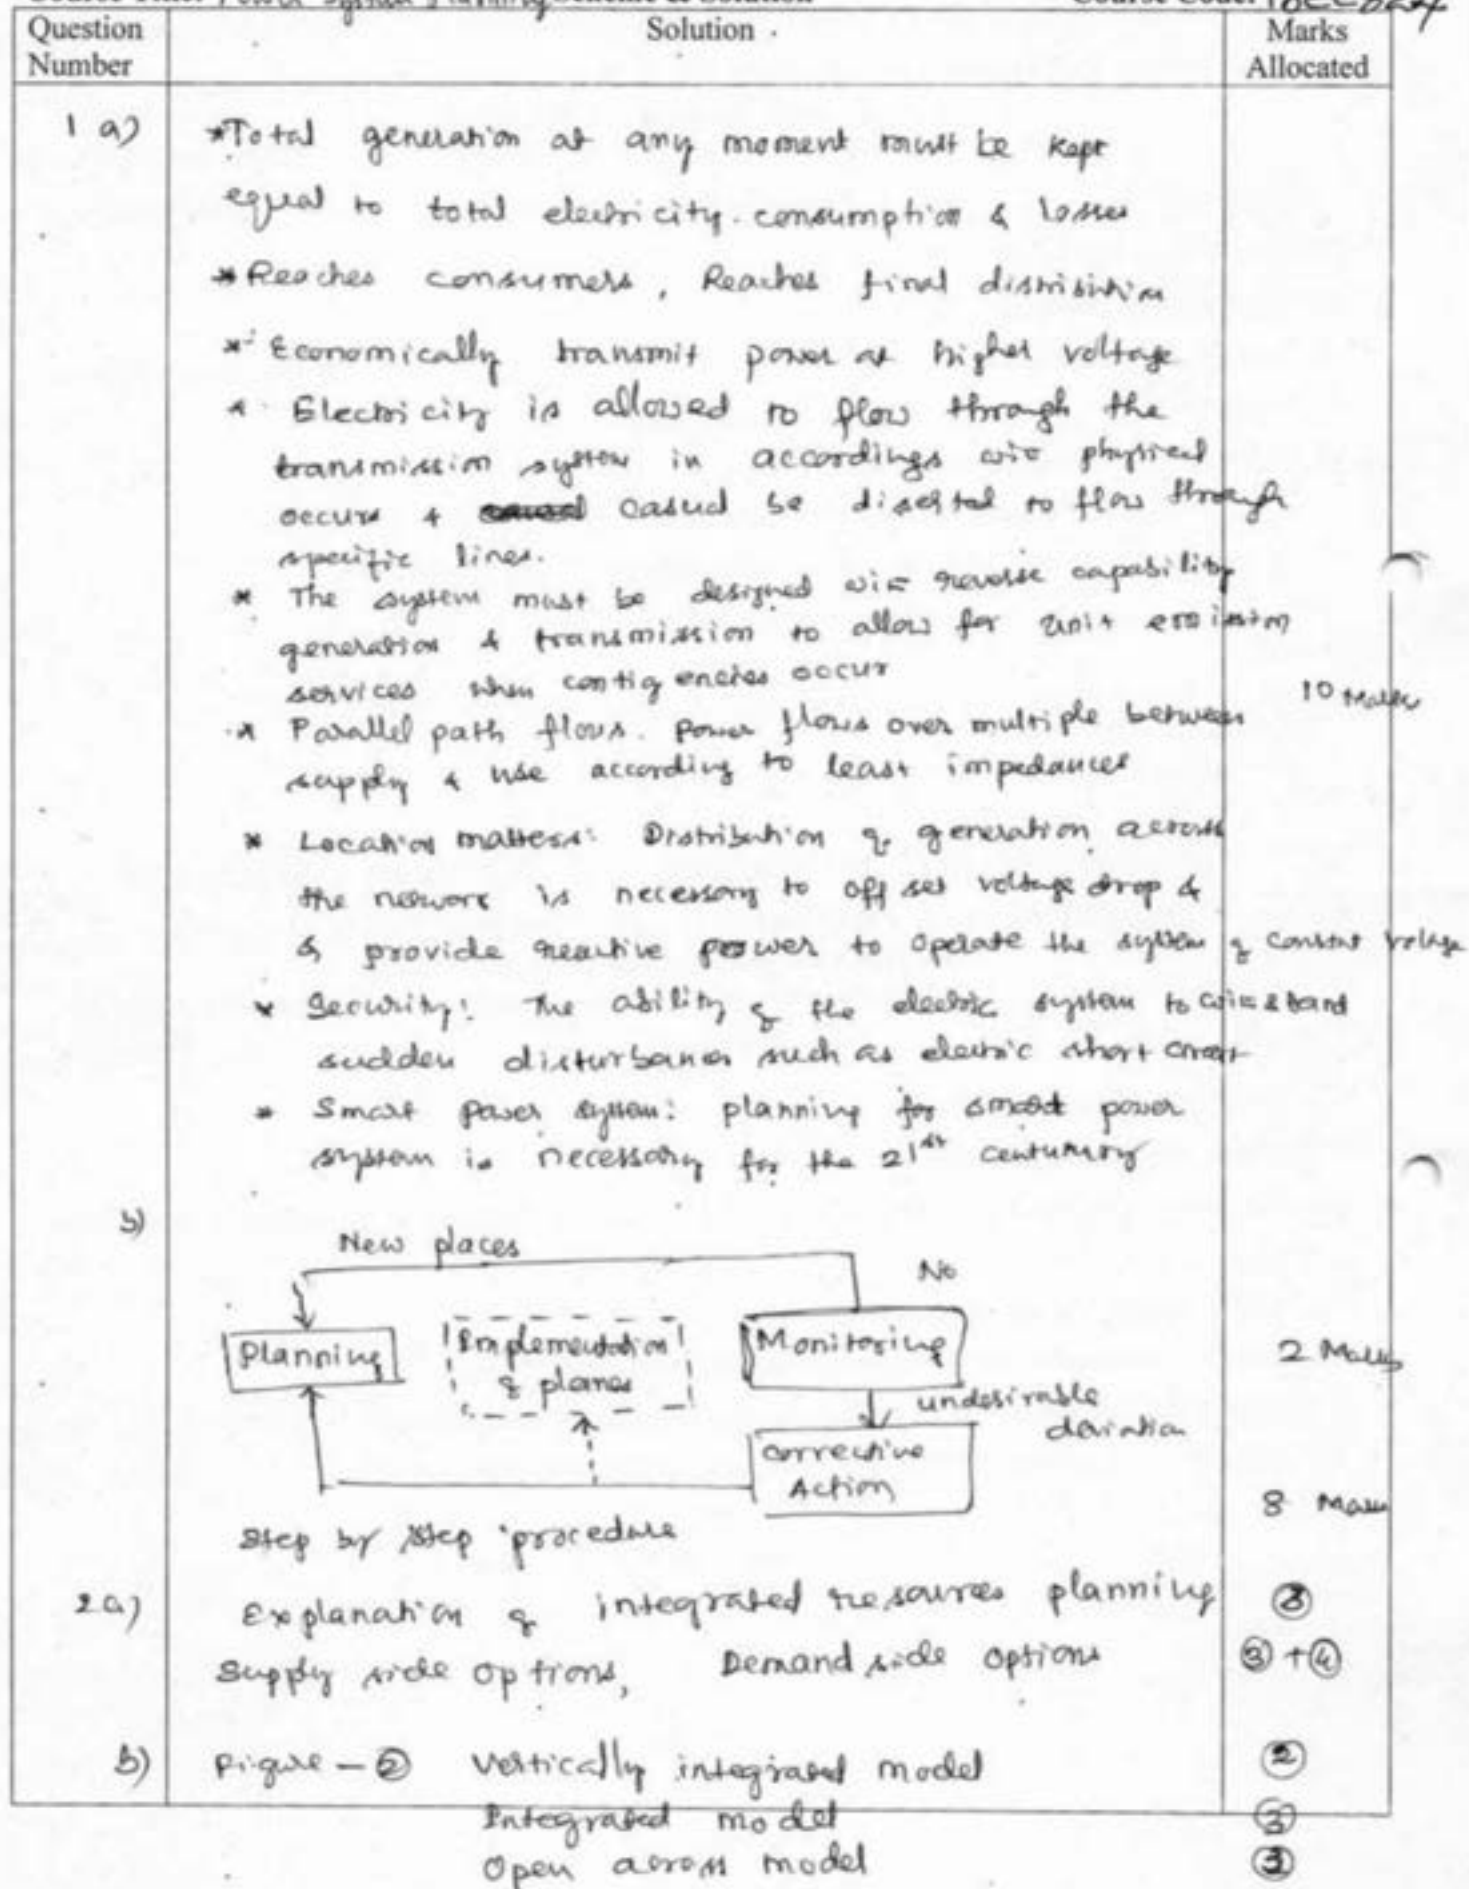 Power System Planning Scheme & Solution
Question Number Solution Marks Allocated
1 a) *Total generation at any moment must be kept
equal to total electricity consumption & losses
* Reaches consumers, Reaches final distribution
* Economically transmit power at higher voltage
* Electricity is allowed to flow through the
transmission system in accordings with physical
occurs & casud be diserted to flow through
specific lines.
* The system must be designed with reverse capability
generation & transmission to allow for unit
services when contigencies occur
10 Marks
* Parallel path flows. Power flows over multiple between
supply & use according to least impedances
* Location matters: Distribution of generation across
the network is necessary to off set voltage drop &
& provide reactive power to operate the system of constant voltage
* Security: The ability of the electric system to withstand
sudden disturbances such as electric short circuit
* Smart power system: planning for smart power
system is necessary for the 21st
b)
New places
No
Planning
Implementation
of planes
Monitoring
2 Marks
undesirable
deviation
corrective
Action
8 Marks
Step by step procedure
2a) Explanation of integrated resources planning 8
Supply side options, Demand side options 3 + 4
b) Figure - 2 Vertically integrated model 2
Integrated model 3
Open across model 3